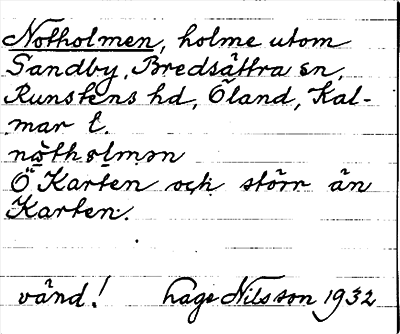 Notholmen, holme utom
Sandby, Bredsättra sn,
Runstens hd, Öland, Kal-
mar l.
nòtholmən
Ö Karten och störr än
Karten.
vänd! Hage Nilsson 1932